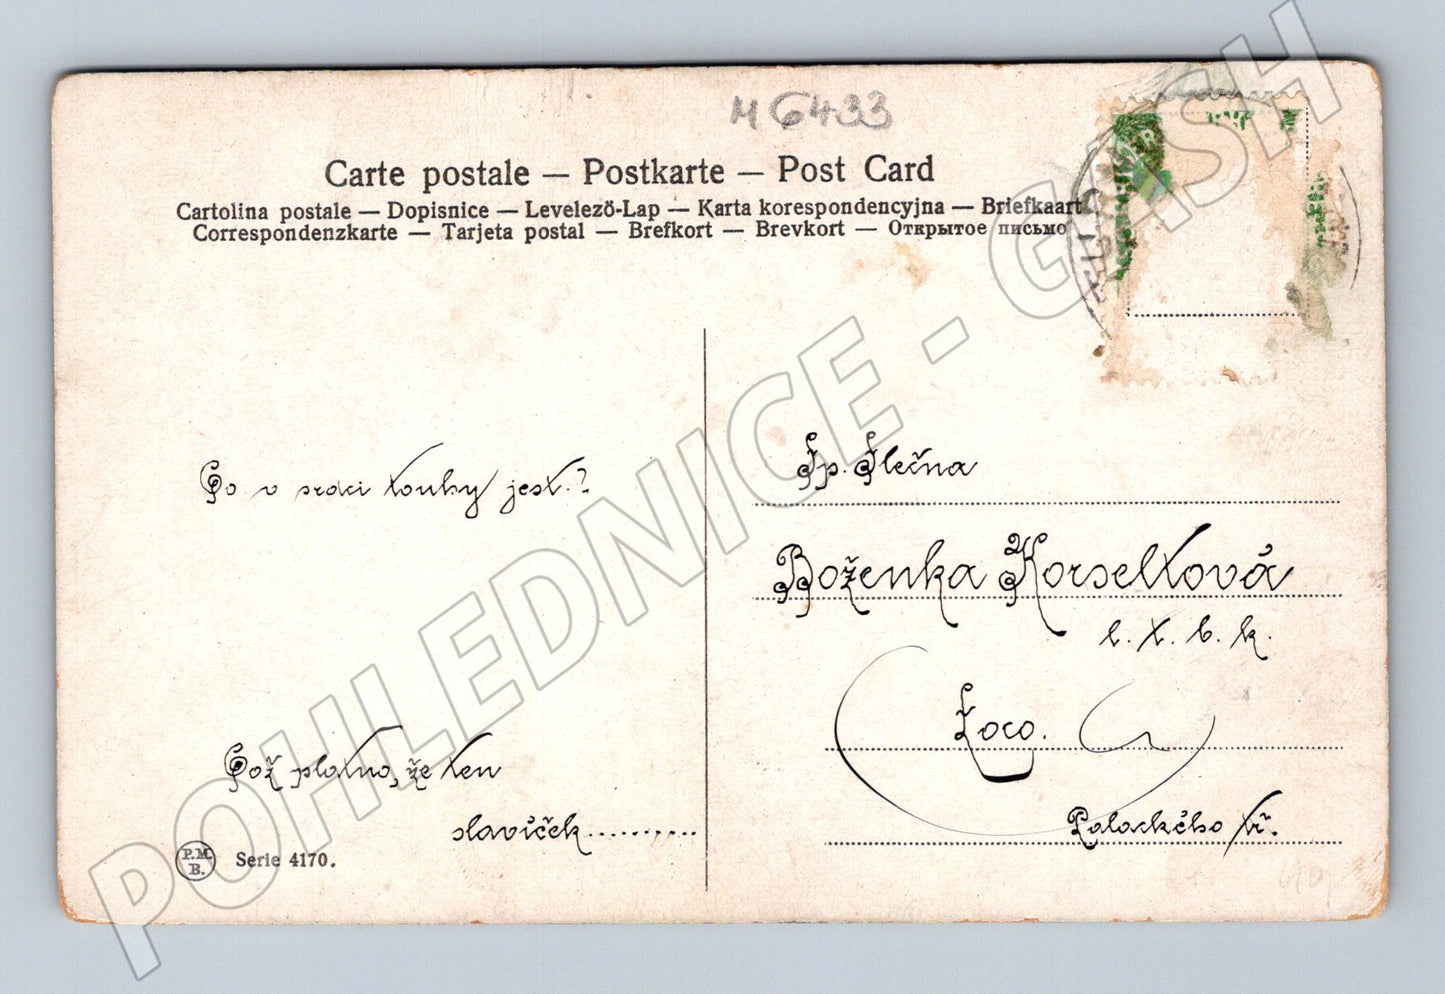 M 6433
Carte postale — Postkarte — Post Card
Cartolina postale — Dopisnice — Levelező-Lap — Karta korespondencyjna — Briefkaart
Correspondenzkarte — Tarjeta postal — Brefkort — Brevkort — Открытое письмо
Co v srdci touhy jest.?
Což platno, že ten
slavíček..........
P.M.
B.
Serie 4170.
Sp. Slečna
Boženka Korseltová
l. t. b. k.
Loco.
Palackého tř.
POHLEDNICE - GASH